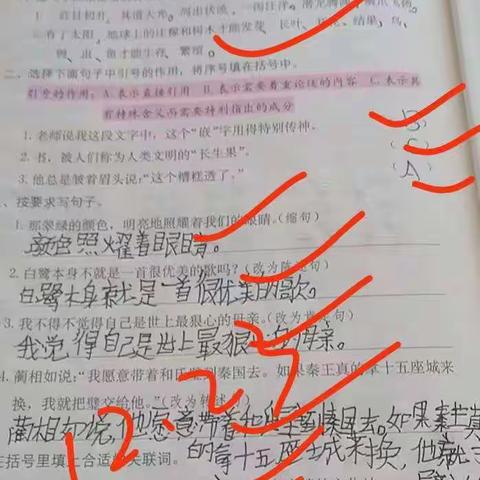 有了太阳,地球上的庄稼和树木才能发芽、长叶、开花、结果;鸟、
兽、虫、鱼才能生存、繁殖。
二、选择下面句子中引号的作用,将序号填在括号中。
引号的作用:A.表示直接引用 B.表示需要着重论述的内容 C.表示具
有特殊含义而需要特别指出的成分
1.老师说我这段文字中,这个“嵌”字用得特别传神。 (B)
2.书,被人们称为人类文明的“长生果”。 (C)
3.他总是皱着眉头说:“这个糟糕透了。” (A)
按要求写句子。
1.那翠绿的颜色,明亮地照耀着我们的眼睛。(缩句)
颜色照耀着眼睛。
2.白鹭本身不就是一首很优美的歌吗?(改为陈述句)
白鹭本身就是一首很优美的歌。
3.我不得不觉得自己是世上最狠心的母亲。(改为肯定句)
我觉得自己是世上最狠心的母亲。
4.蔺相如说:“我愿意带着和氏璧到秦国去。如果秦王真的拿十五座城来
换,我就把璧交给他。”(改为转述句)
蔺相如说,他愿意带着和氏璧到秦国去。如果秦王真
的拿十五座城来换,他就
在括号里填上合适的关联词。
12.23